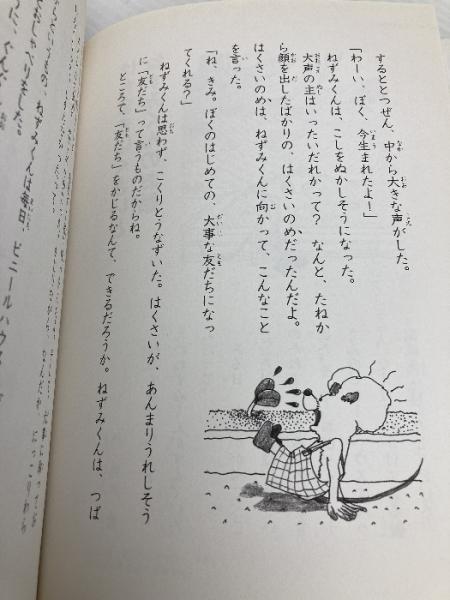 するととつぜん、中から大きな声がした。
「わーい、ぼく、今生まれたよー」
ねずみくんは、こしをぬかしそうになった。
大声の主はいったいだれかって？　なんと、たねか
ら顔を出したばかりの、はくさいのめだったんだよ。
はくさいのめは、ねずみくんに向かって、こんなこと
を言った。
「ね、きみ。ぼくのはじめての、大事な友だちになっ
てくれる？」
ねずみくんは思わず、こくりとうなずいた。はくさいが、あんまりうれしそう
に「友だち」って言うものだからね。
ところで、「友だち」をかじるなんて、できるだろうか。ねずみくんは、つば
ねずみくんは毎日、ビニールハウス
ておしゃべりをした。